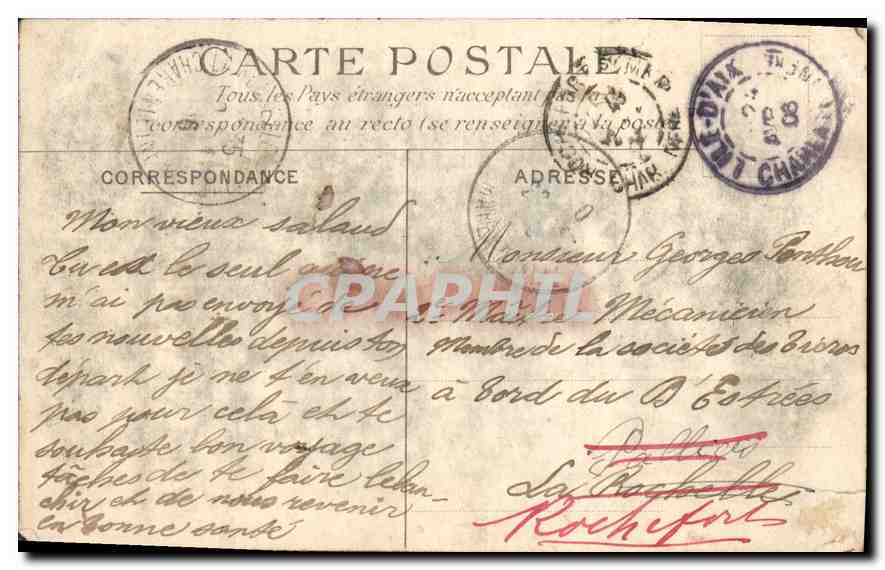 CARTE POSTALE
Tous les Pays étrangers n'acceptant pas la
correspondance au recto (se renseigner à la poste)
CORRESPONDANCE
Mon vieux salaud
tu est le seul qui ne
m'ai pas envoyé de
tes nouvelles depuis ton
départ je ne t'en veux
pas pour celà et te
souhaite bon voyage
tâches de te faire
et de nous revenir
en bonne santé
ADRESSE
Monsieur Georges
2e Maître Mécanicien
Membre de la société des
à bord du D'Estrées
La Rochelle
Rochefort
ILE-D'AIX
08
CPAPHIL